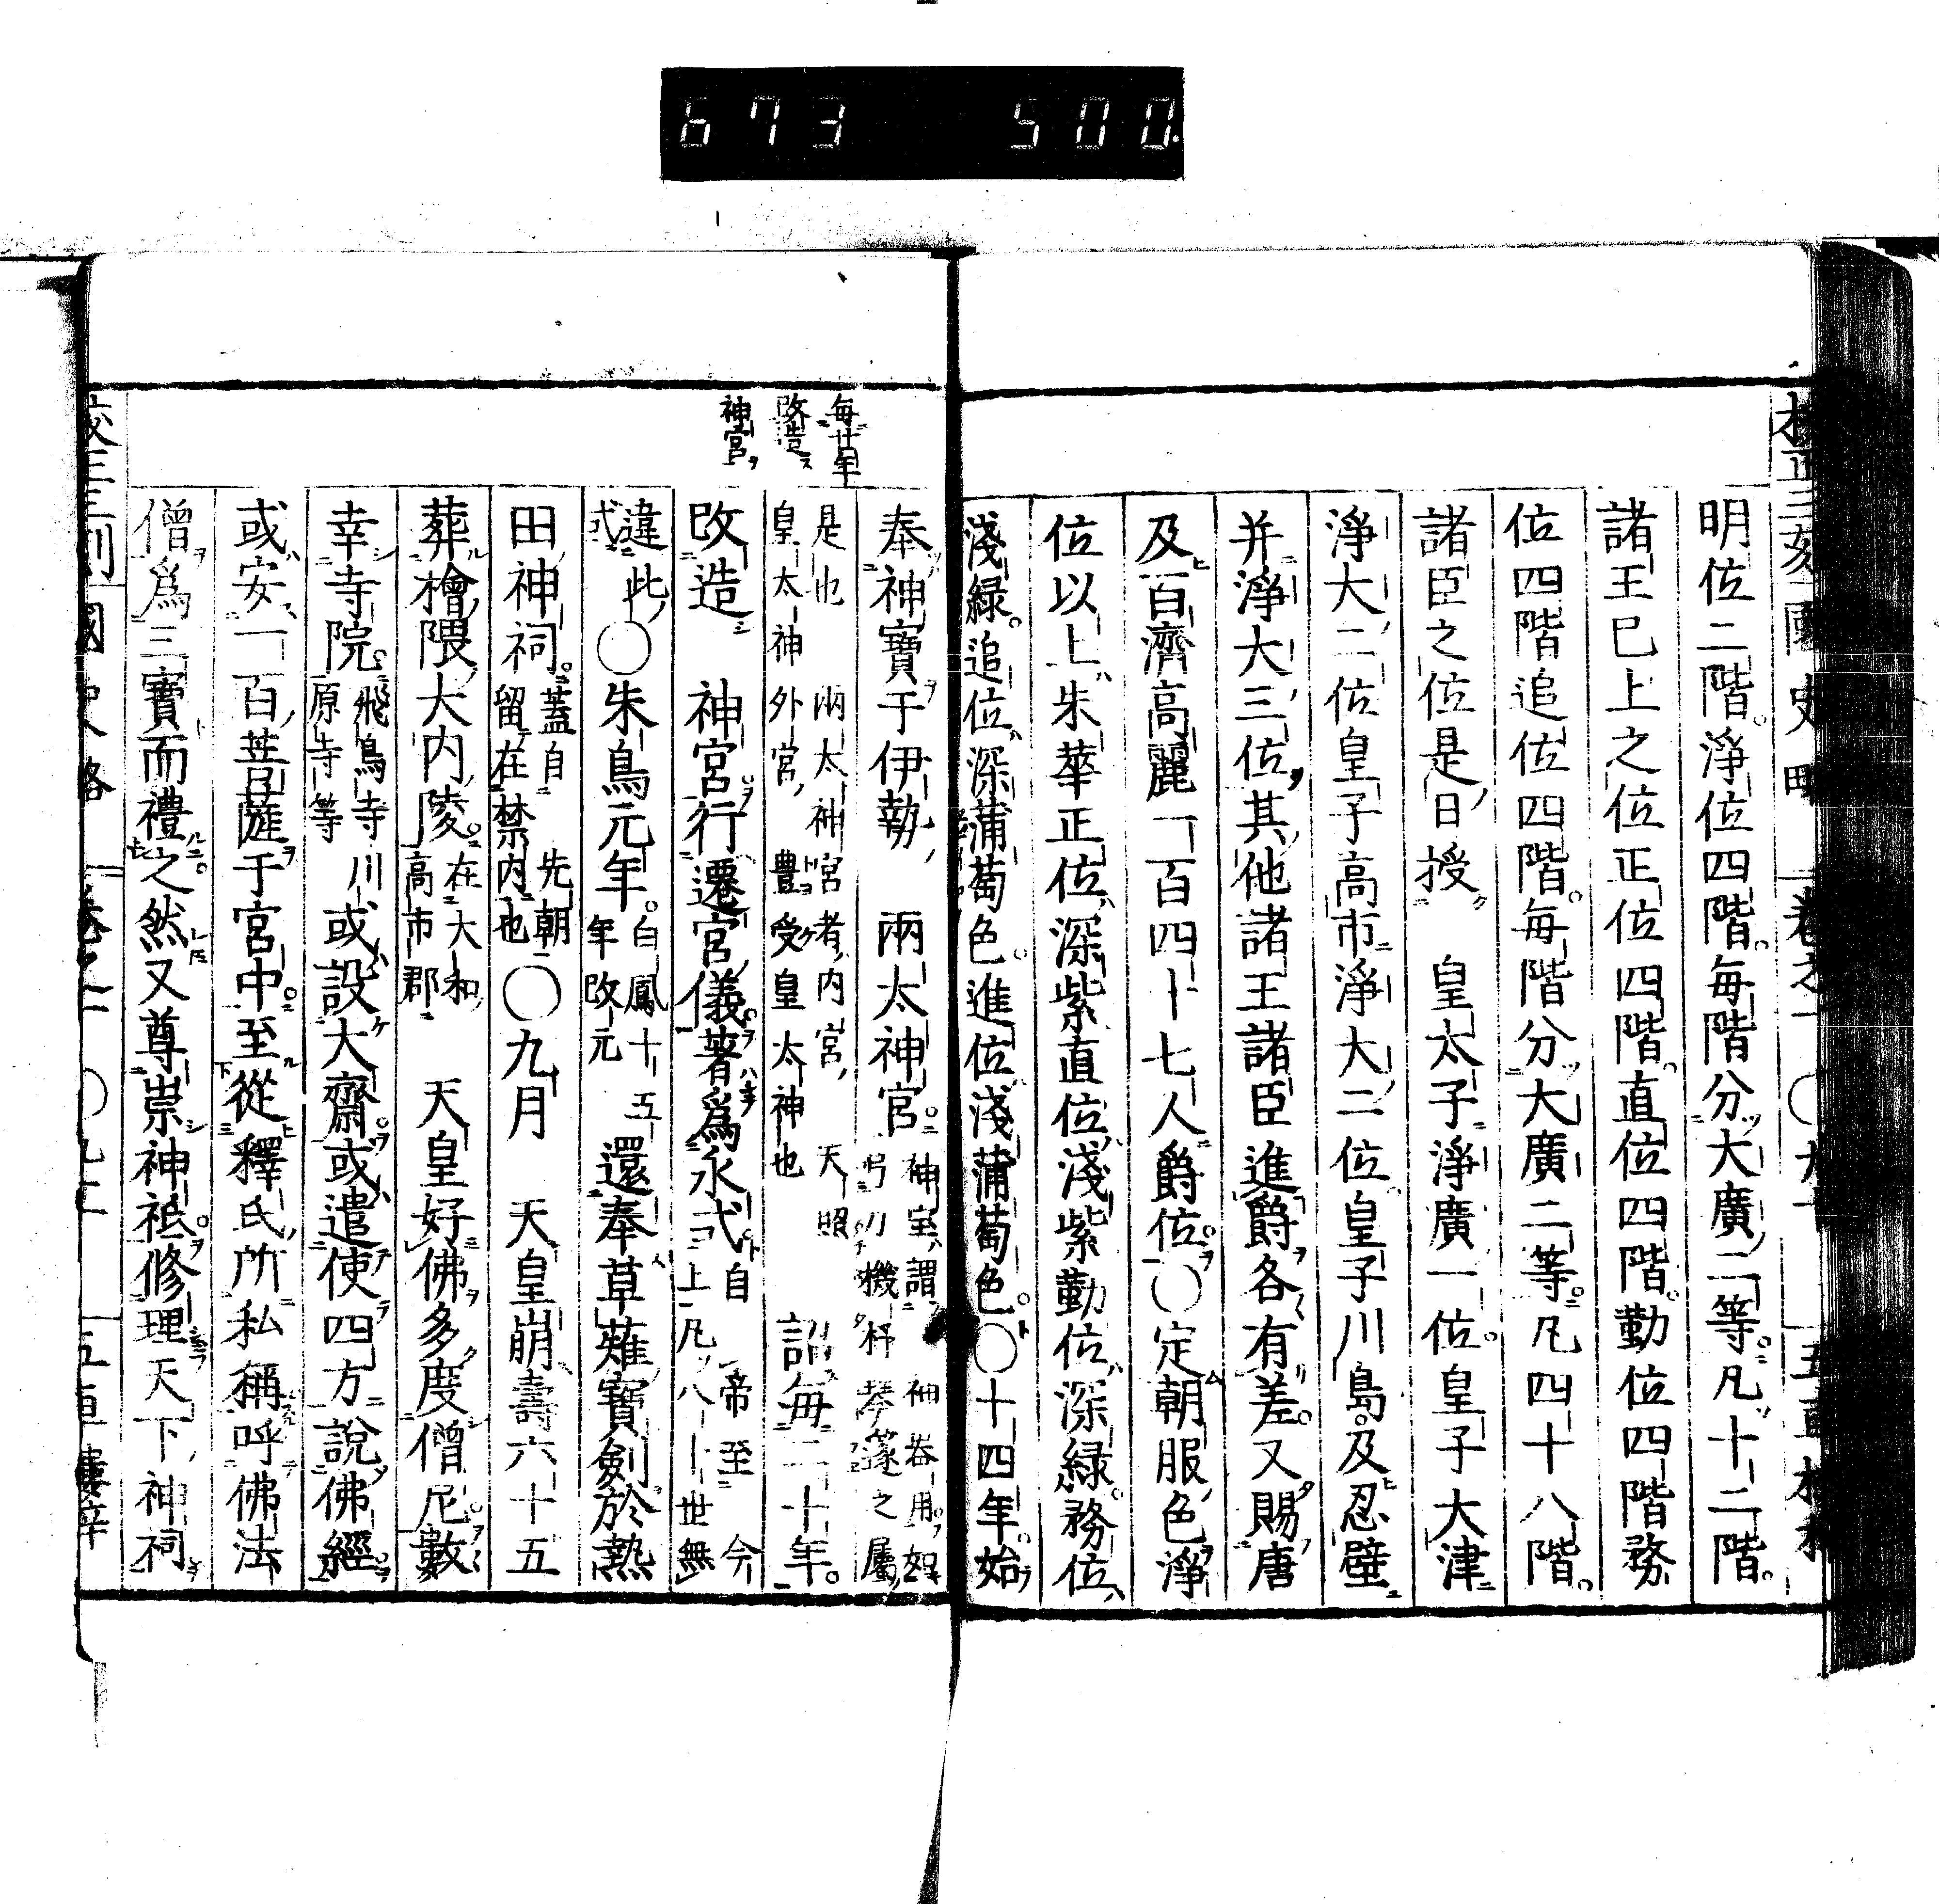 673 500
明位二階。淨位四階。毎階分大廣二等。凡十二階。
諸王已上之位正位四階。直位四階。勤位四階務
位四階追位四階。毎階分大廣二等。凡四十八階。
諸臣之位是日授 皇太子淨廣一位。皇子大津
淨大二位皇子高市淨大二位皇子川島。及忍壁
并淨大三位其他諸王諸臣進爵各有差。又賜唐
及百濟高麗一百四十七人爵位。〇定朝服色淨
位以上朱華正位深紫直位淺紫勤位深緑。務位
淺緑。追位深蒲萄色。進位淺蒲萄色。〇十四年。始
毎廿年
改造
神宮
奉神寶于伊勢 兩太神宮。神宝謂 神器用。如
弓刀機杼琴篷之屬
是也 兩太神宮者内宮 天照
皇太神外宮豊受皇太神也 詔毎二十年。
改造 神宮行遷宮儀。著爲永式自 帝至 今
上凡八十世無
違此
式 〇朱鳥元年。白鳳十五
年改元 還奉草薙寶劍於熱
田神祠。蓋自 先朝
留在禁内也 〇九月 天皇崩壽六十五
葬檜隈大内陵。在大和
高市郡 天皇好佛多度僧尼。數
幸寺院。飛鳥寺川
原寺等 或設大齋。或遣使四方說佛經。
或安一百菩薩于宮中。至從釋氏所私稱呼佛法
僧爲三寶而禮之。然又尊崇神祇。修理天下神祠
國史略